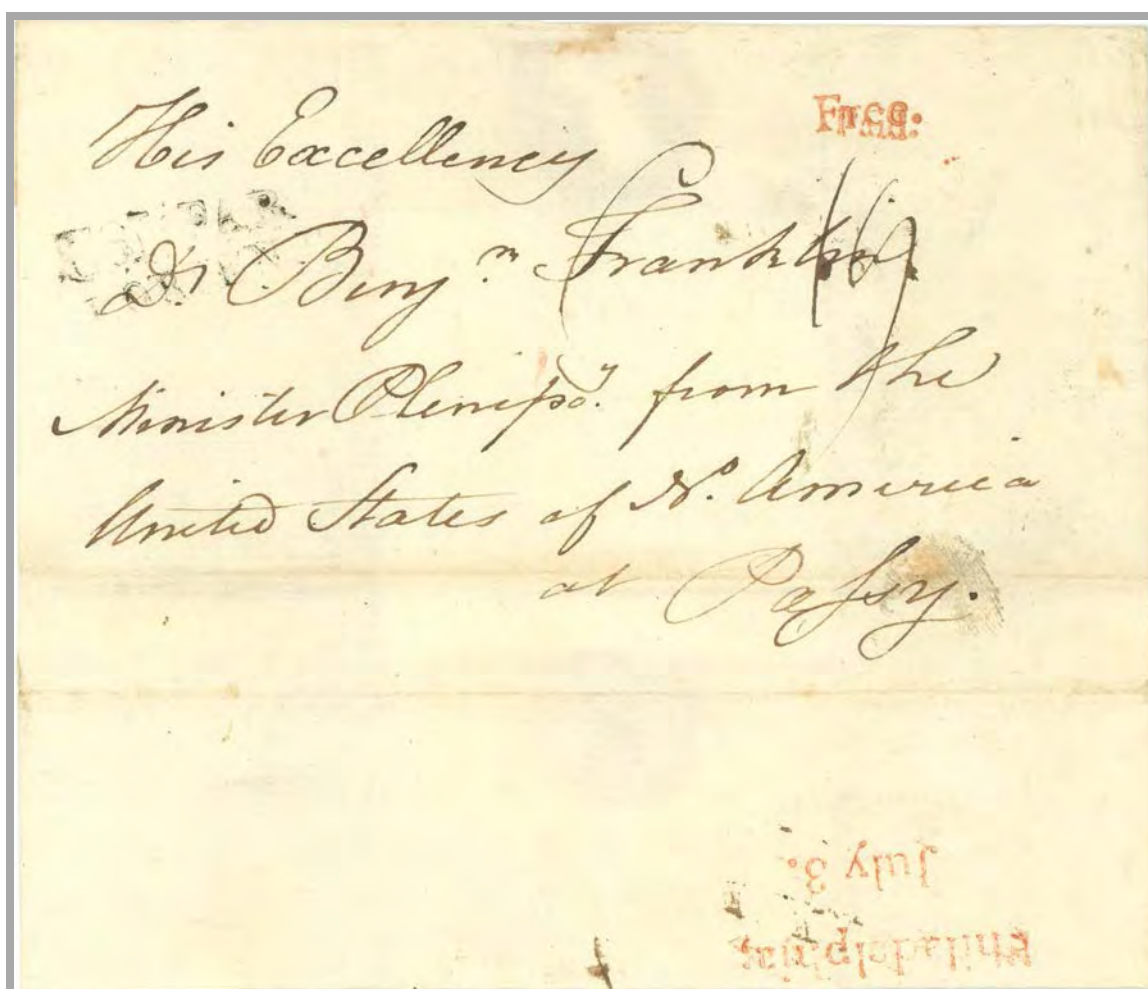 Free.
His Excellency
Dr Benj.n Franklin
Minister Plenipo.y from the
United States of No. America
at Paſsy.
July 3.
Philadelphia,